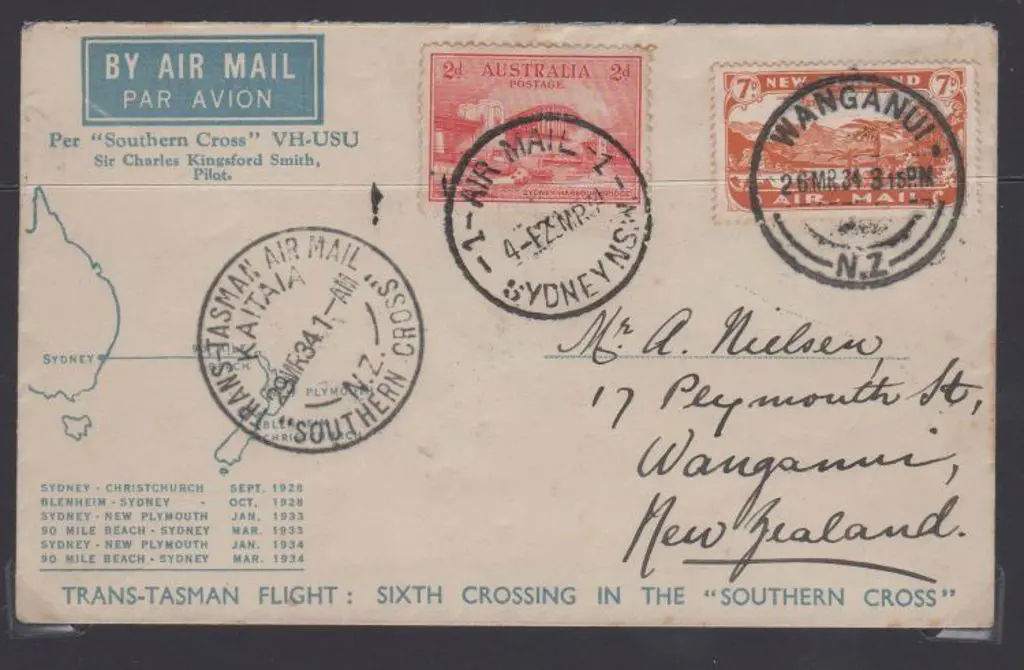 BY AIR MAIL
PAR AVION
Per "Southern Cross" VH-USU
Sir Charles Kingsford Smith,
Pilot.
2d AUSTRALIA 2d
POSTAGE
SYDNEY HARBOUR BRIDGE
-1- AIR MAIL -1-
SYDNEY NSW
7d NEW 7d
AIR MAIL
WANGANUI
26 MR 34 3 15 PM
N.Z
TRANS-TASMAN AIR MAIL "SOUTHERN CROSS"
KAITAIA
29 MR 34. 1-AM
N.Z.
SYDNEY
PLYMOUTH
BLENHEIM
CHRISTCHURCH
Mr A. Nielsen,
17 Plymouth St,
Wanganui,
New Zealand.
SYDNEY - CHRISTCHURCH SEPT. 1928
BLENHEIM - SYDNEY - OCT. 1928
SYDNEY - NEW PLYMOUTH JAN. 1933
90 MILE BEACH - SYDNEY MAR. 1933
SYDNEY - NEW PLYMOUTH JAN. 1934
90 MILE BEACH - SYDNEY MAR. 1934
TRANS-TASMAN FLIGHT : SIXTH CROSSING IN THE "SOUTHERN CROSS"